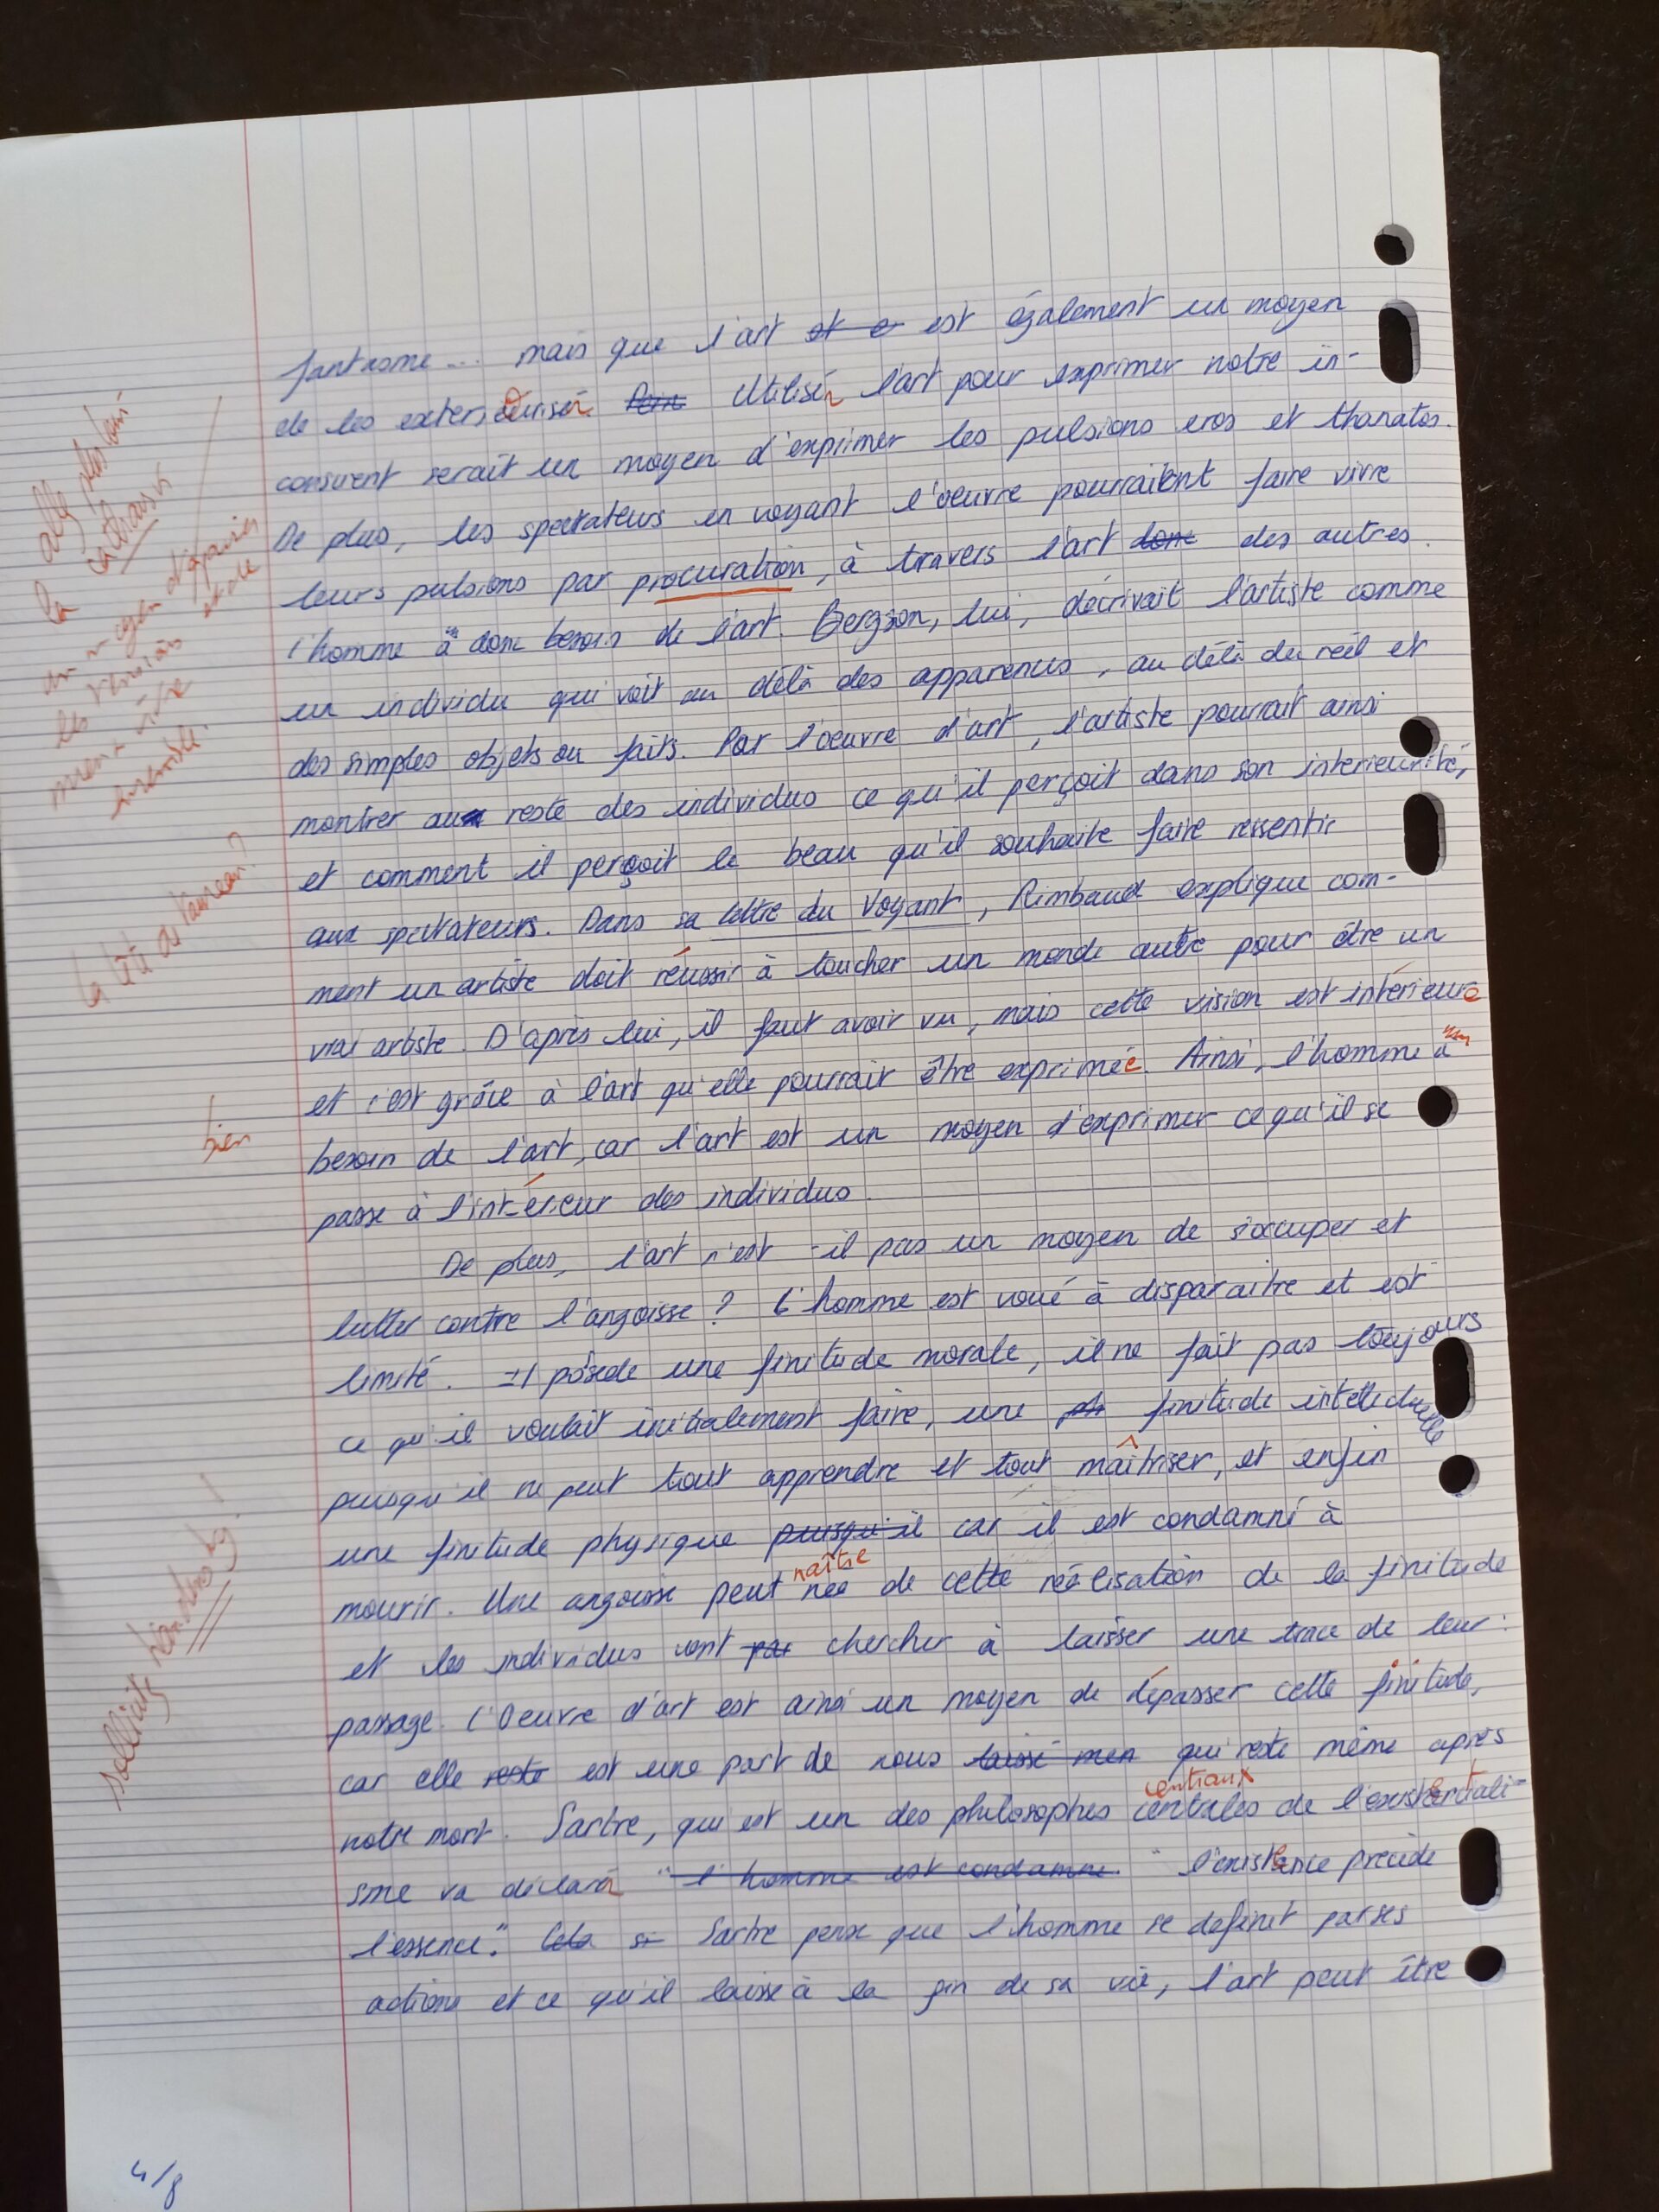 fantasme... mais que l'art est également un moyen
de les exterioriser Utiliser l'art pour exprimer notre in-
conscient serait un moyen d'exprimer les pulsions eros et thanatos.
De plus, les spectateurs en voyant l'oeuvre pourraient faire vivre
leurs pulsions par procuration, à travers l'art donc des autres.
l'homme à donc besoin de l'art. Bergson, lui, décrivait l'artiste comme
un individu qui voit au délà des apparences, au délà du réel et
des simples objets ou faits. Par l'oeuvre d'art, l'artiste pourrait ainsi
montrer au reste des individus ce qu'il perçoit dans son interieurité,
et comment il perçoit le beau qu'il souhaite faire ressentir
aux spectateurs. Dans sa lettre du Voyant, Rimbaud explique com-
ment un artiste doit réussir à toucher un monde autre pour être un
vrai artiste. D'après lui, il faut avoir vu, mais cette vision est intérieure
et c'est grâce à l'art qu'elle pourrait être exprimée. Ainsi, l'homme à
besoin de l'art, car l'art est un moyen d'exprimer ce qu'il se
passe à l'intérieur des individus.
De plus, l'art n'est-il pas un moyen de s'occuper et
lutter contre l'angoisse ? L'homme est voué à disparaitre et est
limité. Il posède une finitude morale, il ne fait pas toujours
ce qu'il voulait initialement faire, une finitude intellectuelle
puisqu'il ne peut tout apprendre et tout maîtriser, et enfin
une finitude physique puisqu'il car il est condamné à
naître
mourir. Une angoisse peut née de cette réalisation de la finitude
et les individus vont par chercher à laisser une trace de leur
passage. L'Oeuvre d'art est ainsi un moyen de dépasser cette finitude,
car elle reste est une part de nous qui reste même après
centraux
notre mort. Sartre, qui est un des philosophes centrales de l'existentiali-
sme va déclarer "l'homme est condamné" l'existence précède
l'essence". Cela Sartre pense que l'homme se définit par ses
actions et ce qu'il laisse à la fin de sa vie, l'art peut être
la catharsis
un moyen d'apaiser
et de
mieux vivre
ensemble.
bien
4/8